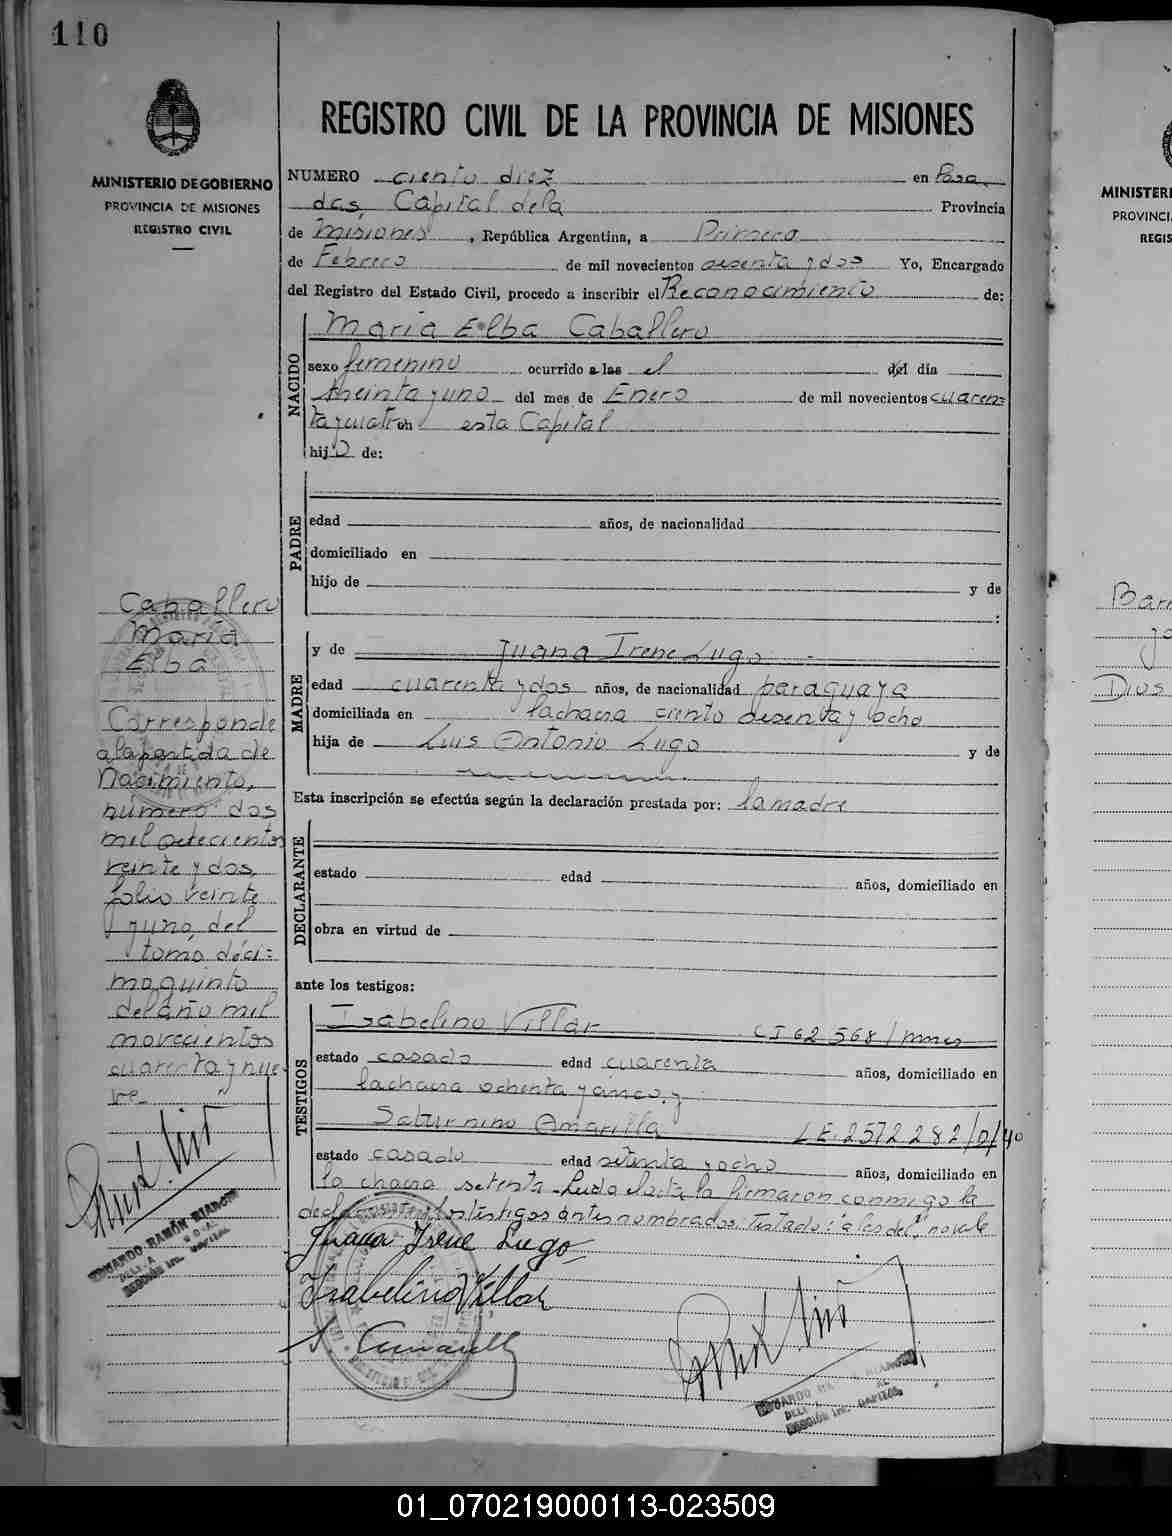 110
MINISTERIO DE GOBIERNO
PROVINCIA DE MISIONES
REGISTRO CIVIL
REGISTRO CIVIL DE LA PROVINCIA DE MISIONES
NUMERO ciento diez en Posa
das, Capital dela Provincia
de Misiones, República Argentina, a Primero
de Febrero de mil novecientos sesenta y dos Yo, Encargado
del Registro del Estado Civil, procedo a inscribir el Reconocimiento de:
NACIDO
Maria Elba Caballero
sexo femenino ocurrido a las el del día
treinta y uno del mes de Enero de mil novecientos cuaren=
ta y cuatro en esta Capital
hijo de:
PADRE
edad años, de nacionalidad
domiciliado en
hijo de y de
:
MADRE
y de Juana Irene Lugo
edad cuarenta y dos años, de nacionalidad paraguaya
domiciliada en la chacra ciento sesenta y ocho
hija de Luis Antonio Lugo y de
Esta inscripción se efectúa según la declaración prestada por: la madre
DECLARANTE
estado edad años, domiciliado en
obra en virtud de
ante los testigos:
TESTIGOS
Isabelino Villar CI 62 568/mnes
estado casado edad cuarenta años, domiciliado en
la chacra ochenta y cinco, y
Saturnino Amarilla L.E. 2572282/D/40
estado casado edad setenta y ocho años, domiciliado en
la chacra setenta - Leida el acta la firmaron conmigo la
testigos antes nombrados. Testado: "a las del", no vale
Juana Irene Lugo
Isabelino Villar
S. Amarilla
Caballero
María
Elba
Corresponde
a la partida de
Nacimiento,
número dos
mil setecientos
veinte y dos,
folio veinte
y uno, del
tomo déci=
moquinto
del año mil
novecientos
cuarenta y nue
ve.
EDUARDO RAMÓN BIANCHI
MINISTERI
PROVINCI
REGIS
Barr
Dios
01_070219000113-023509